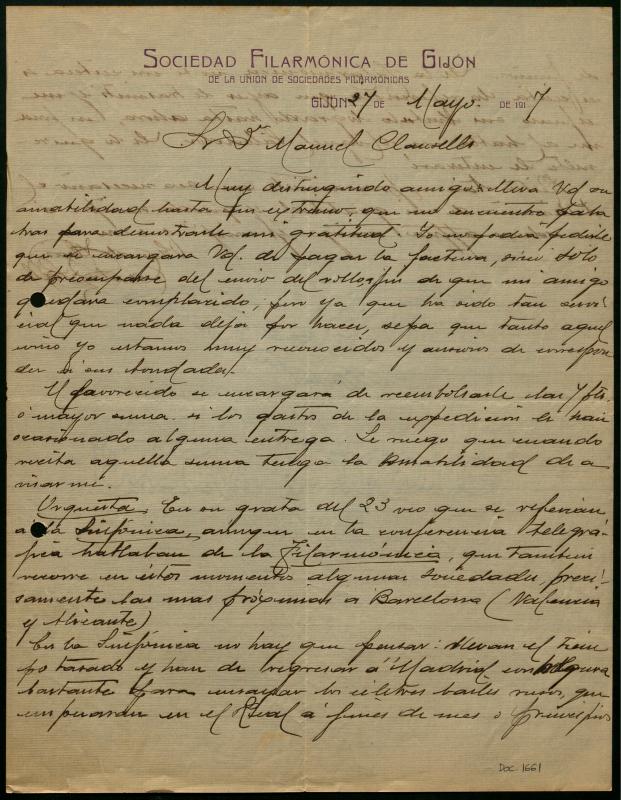 SOCIEDAD FILARMÓNICA DE GIJÓN
DE LA UNIÓN DE SOCIEDADES FILARMÓNICAS
GIJÓN 27 DE Mayo. DE 1917
Sr Dn Manuel Clausells
Muy distinguido amigo: Lleva Vd su
amabilidad hasta tal extremo, que no encuentro pala
bras para demostrarle mi gratitud. Yo no podía pedirle
que se encargara Vd. de pagar la factura, sino solo
de preocuparse del envio del rollo, fin de que mi amigo
quedara complacido, pero ya que ha sido tan servi
cial que nada dejó por hacer, sepa que tanto aquel
como yo estamos muy reconocidos y ansiosos de correspon
der a sus bondades.
El favorecido se encargará de reembolsarle las 7 pts.
ó mayor suma si los gastos de la expedición le han
ocasionado alguna entrega. Le ruego que cuando
reciba aquella suma tenga la amabilidad de a
visarme.
Orquesta. En su grata del 23 veo que se referian
a la Sinfónica, aunque en la conferencia telegrá-
fica hablaban de la Filarmónica, que tambien
recorre en estos momentos algunas sociedades, preci-
samente las mas próximas a Barcelona (Valencia
y Alicante)
En la Sinfónica no hay que pensar: llevan el tiem
po tasado y han de regresar á Madrid con
bastante para ensayar los célebres bailes rusos, que
empezaran en el Real á fines de mes o principios
Doc. 1661